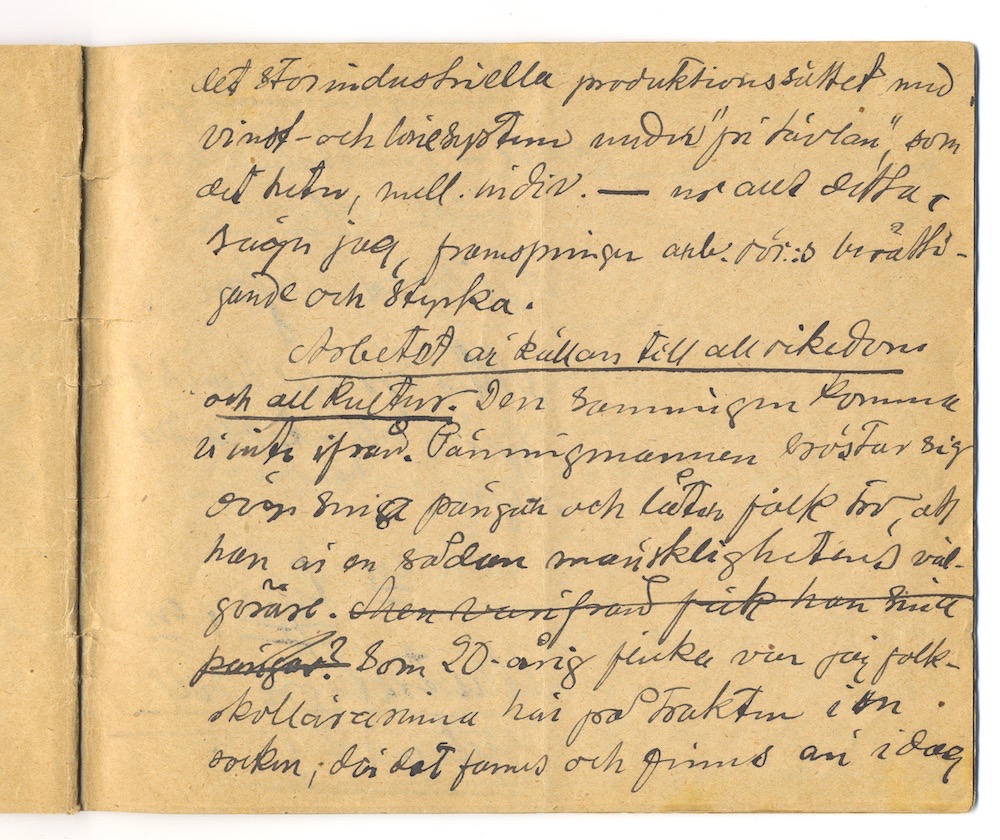 det storindustriella produktionssättet med
vinst- och lönesystem under "fri tävlan", som
det heter, mell. indiv. — ur allt detta,
säger jag, framspringer arb. rör:s berätti-
gande och styrka.
Arbetet är källan till all rikedom
och all kultur. Den sanningen komma
vi inte ifrån. Penningmannen bröstar sig
över sina pängar och låter folk tro, att
han är en sådan mänsklighetens väl-
görare. Men varifrån fick han sina
pängar? Som 20-årig flicka var jag folk-
skollärarinna här på trakten i en
socken, där det fanns och finns än i dag